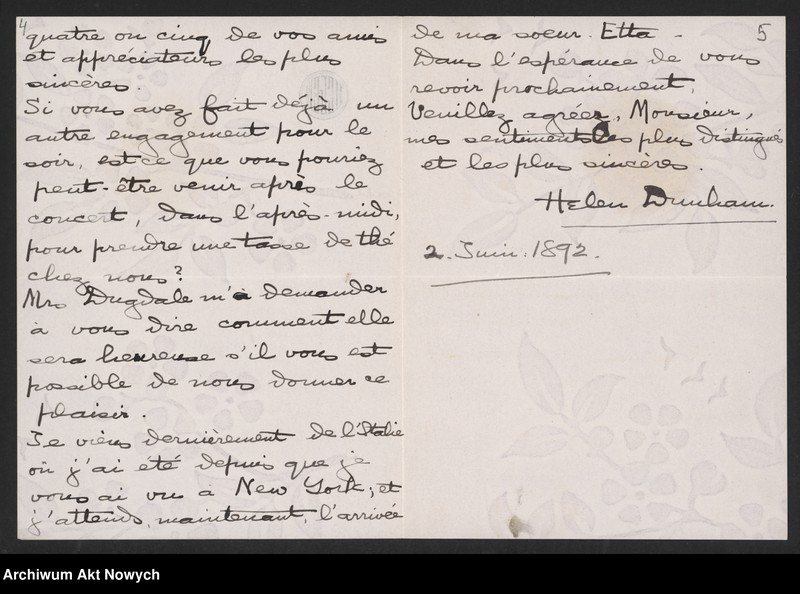 4
quatre ou cinq de vos amis
et appréciateurs les plus
sincères.
Si vous avez fait déjà un
autre engagement pour le
soir, est ce que vous pouriez
peut-être venir après le
concert, dans l'après-midi,
pour prendre une tasse de thé
chez nous?
Mrs Dugdale m'a demander
à vous dire comment elle
sera heureuse s'il vous est
possible de nous donner ce
plaisir.
Je viens dernièrement de l'Italie
où j'ai été depuis que je
vous ai vu a New York, et
j'attends, maintenant, l'arrivée
5
de ma soeur. Etta -
Dans l'espérance de vous
revoir prochainement,
Veuillez agréer, Monsieur,
mes sentiments les plus distingués
et les plus sincères.
Helen Dunham.
2. Juin. 1892.
Archiwum Akt Nowych